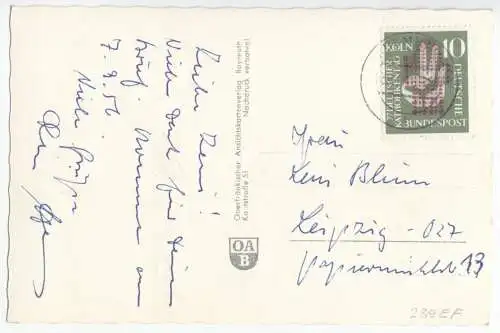 Liebe Resi!
Vielen Dank für Deinen
Brief. Komme am
7.9.56.
Viele Grüße
Oberfränkischer Ansichtskartenverlag Bayreuth
Karlstraße 51 Nachdruck verboten!
OA
B
77. DEUTSCHER
KATHOLIKENTAG
KÖLN
10
DEUTSCHE
BUNDESPOST
Frau
Resi Blüm
Leipzig - 027
Papiermühlstr. 13
284 EF